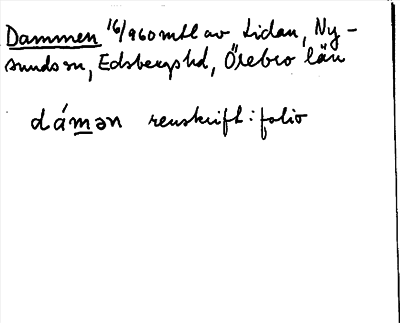 Dammen 16/960 mtl av Lidan, Ny-
sunds sn, Edsbergs hd, Örebro län
dámən renskrift: folio